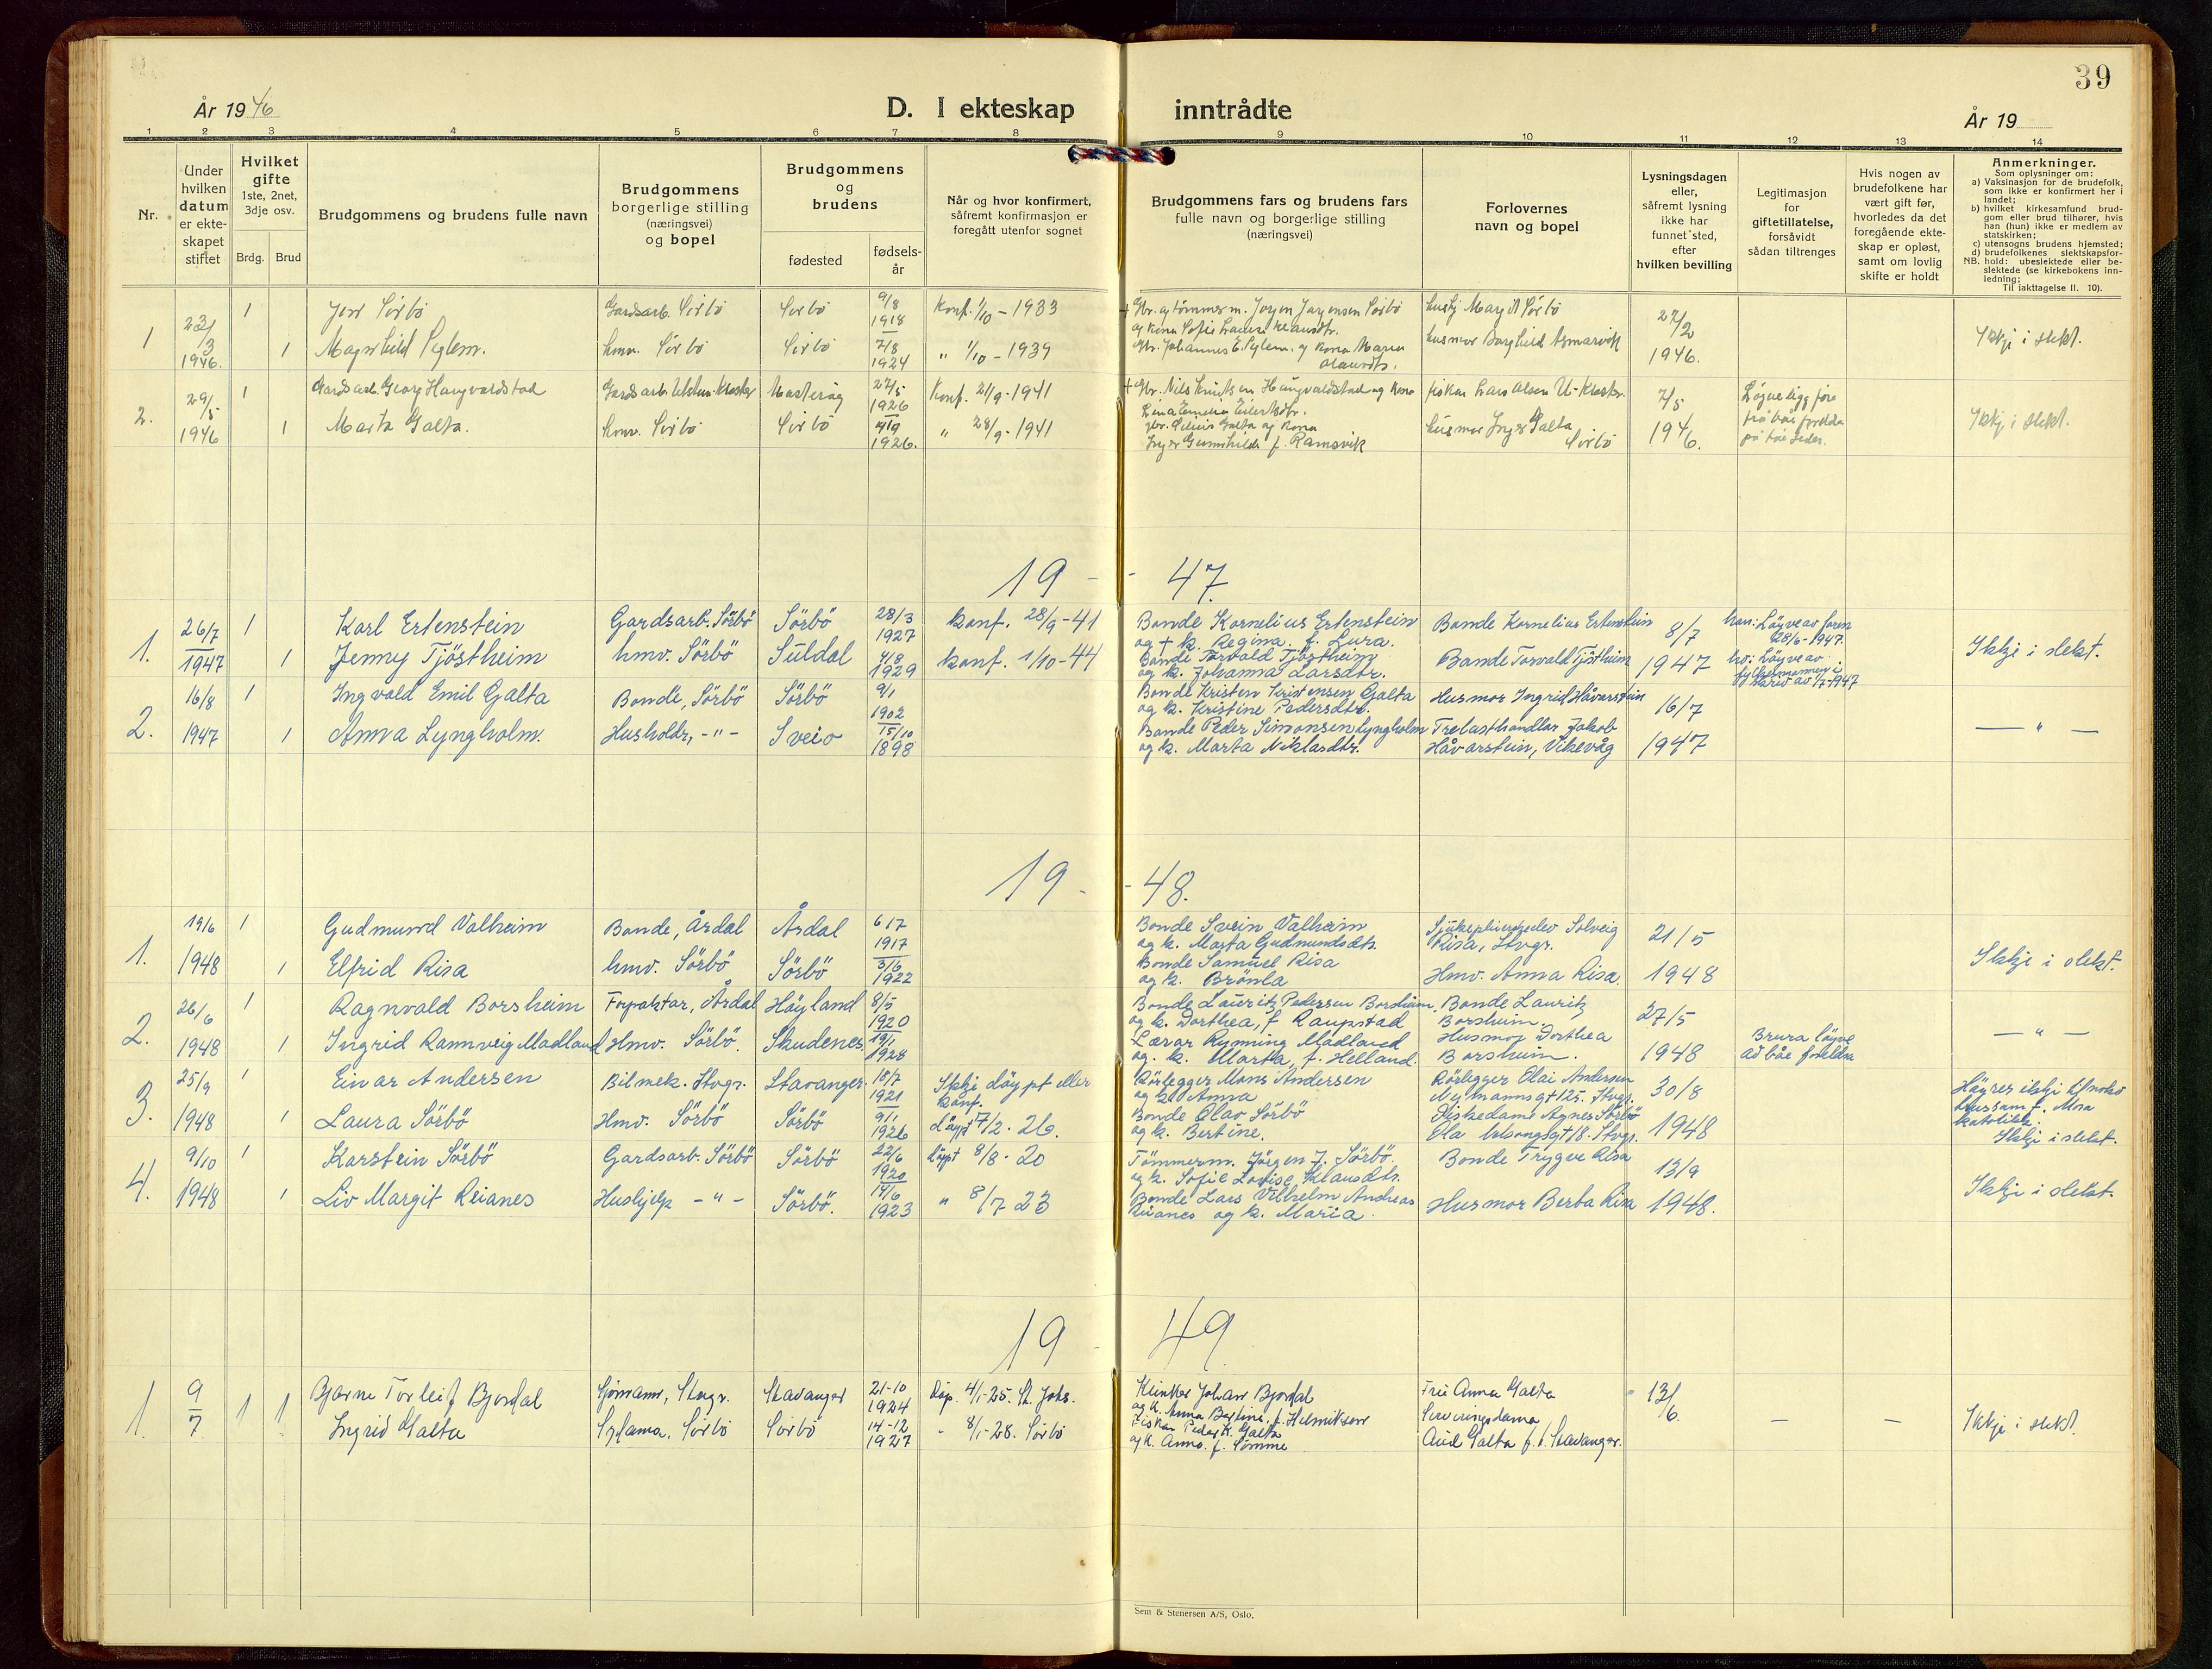 39
År 1946
D. I ekteskap inntrådte
År 19
1 2 3 4 5 6 7 8 9 10 11 12 13 14
Nr.
Under hvilken datum er ekte-skapet stiftet
Hvilket gifte 1ste, 2net, 3dje osv.
Brdg. Brud
Brudgommens og brudens fulle navn
Brudgommens borgerlige stilling (næringsvei) og bopel
Brudgommens og brudens
fødested
fødsels-år
Når og hvor konfirmert, såfremt konfirmasjon er foregått utenfor sognet
Brudgommens fars og brudens fars fulle navn og borgerlige stilling (næringsvei)
Forlovernes navn og bopel
Lysningsdagen eller, såfremt lysning ikke har funnet sted, efter hvilken bevilling
Legitimasjon for giftetillatelse, forsåvidt sådan tiltrenges
Hvis nogen av brudefolkene har vært gift før, hvorledes da det foregående ekte-skap er opløst, samt om lovlig skifte er holdt
Anmerkninger.
Som oplysninger om:
a) Vaksinasjon for de brudefolk, som ikke er konfirmert her i landet;
b) hvilket kirkesamfund brud-gom eller brud tilhører, hvis han (hun) ikke er medlem av statskirken;
c) utensogns brudens hjemsted;
d) brudefolkenes slektskapsfor-hold: ubeslektede eller be-slektede (se kirkebokens inn-ledning;
NB.
Til iakttagelse II. 10).
1 23/3 1946. 1 Sörbö Gardsarb. Sörbö Sörbö 9/8 1918 Konf. 1/10 - 1933 + Gbr. og tømmerm. Jörgen Jörgensen Sörbö Husj Margit Sörbö 27/2 1946. Ikkje i slekt.
og kona Sofie
1 Magnhild Sörbö Sörbö 7/8 1924 " 1/10 - 1939 Gbr. Johannes E. og kona Maria husmor Borghild
2. 29/5 1946 1 Gardsarb. Georg Haugvaldstad Gardsarb. Utstein Kloster Mosterøy 27/5 1926 Konf. 21/9 - 1941 + Gbr. Nils Knutsen Haugvaldstad og kona fiskar Lars Olsen U-Kloster. 7/5 1946. Løyve ligg føre frå båe foreldra på båe sider. Ikkj i slekt.
1 Marta Galta. hmv. Sörbö Sörbö 1926. " 28/9 - 1941 gbr. Galta og kona husmor Inger Galta Sörbö
Inger Gunnhilda f. Ramsvik
19 - - 47.
1. 26/7 1947 1 Karl Ertenstein Gardsarb. Sörbö Sörbö 28/3 1927 konf. 28/9 - 41 Bonde Kornelius Ertenstein Bonde Kornelius Ertenstein 8/7 1947 han: Löyve av foren 28/6 - 1947. Ikkje i slekt.
og + k. Regina. f. Lura.
1 Jenny Tjöstheim hmv. Sörbö Suldal 4/8 1929 konf. 1/10 - 44 Bonde Torvald Tjöstheim Bonde Torvald Tjöstheim ho: Löyve av fylkesmannen i
og k. Johanna Larsdtr.
2. 16/8 1947 1 Ingvald Emil Galta Bonde, Sörbö Sörbö 9/1 1902 Bonde Kristen Kristensen Galta Husmor Ingrid Håvarstein 16/7 1947 — " —
og k. Kristine Pedersdtr.
1 Anna Lyngholm. Husholdr, - " - Sveio 15/10 1898 Bonde Peder Simonsen Lyngholm Trelasthandlar Jakob
og k. Marta Niklasdtr. Håvarstein, Vikevåg
19 - - 48.
1. 19/6 1948 1 Gudmund Valheim Bonde, Årdal Årdal 6/7 1917 Bonde Svein Valheim Sjukepleierskeelev Solveig 21/5 1948 Ikkje i slekt.
og k. Marta Gudmundsdtr. Risa, Stvgr.
1 Elfrid Risa hmv. Sörbö Sörbö 3/6 1922 Bonde Samuel Risa
og k. Brönla Hmv. Anna Risa.
2. 26/6 1948 1 Ragnvald Borsheim Forpaktar, Årdal Höyland 8/5 1920 Bonde Lauritz Pedersen Borsheim. Bonde Lauritz 27/5 1948 — " —
og k. Dorthea, f. Raupstad Borsheim.
1 Ingrid Rannveig Madland Hmv. Sörbö. Skudenes 19/1 1928 Lærar Rynning Madland Husmor Dorthea Brura löyve
og. k. Marta, f. Helland. Borsheim. av båe foreldra
3. 25/9 1948 1 Einar Andersen Bilmek. Stvgr. Stavanger. 18/7 1921 Ikkje döypt eller konf. Rörlegger Mons Andersen Rörlegger Olai Andersen 30/8 1948 Höyrer ikkje til noko
og k. Anna Nymannsgt 125. Stvgr. trussamf. Mora
1 Laura Sörbö Hmv. Sörbö Sörbö 9/1 1926 döypt 7/2 - 26. Bonde Olav Sörbö Diskedame Agnes Sörbö katolikk.
og k. Bertine. 18. Stvgr. Ikkje i slekt.
4. 9/10 1948 1 Karstein Sörbö Gardsarb. Sörbö Sörbö 22/6 1920 döypt 8/8 - 20 Tömmerm. Jörgen J. Sörbö. Bonde Trygve Risa 13/9 1948. Ikkje i slekt.
og k. Sofie Lovise Klausdtr.
1 Liv Margit Reianes Hushjelp - " - Sörbö. 14/6 1923 " 8/7 23 Bonde Lars Vilhelm Andreas Husmor Berta Risa
Reianes og k. Maria.
19 49
1. 9/7 1 1 Bjarne Torleif Bjordal Sjömann, Stvgr. Stavanger 21-10 1924 Döp. 4/1-25. St. Johs. Johan Bjordal Fru Anna Galta 13/6. — — Ikkje i slekt.
og k. Anna Bertine, f. Helmiksen Serveringsdama
Ingrid Galta Sydama, Sörbö Sörbö 14-12 1927 " 8/1-28. Sörbö Fiskar Peder K. Galta Aud Galta f. b. Stavanger.
og k. Anna. f. Sömme
Sem & Stenersen A/S, Oslo.